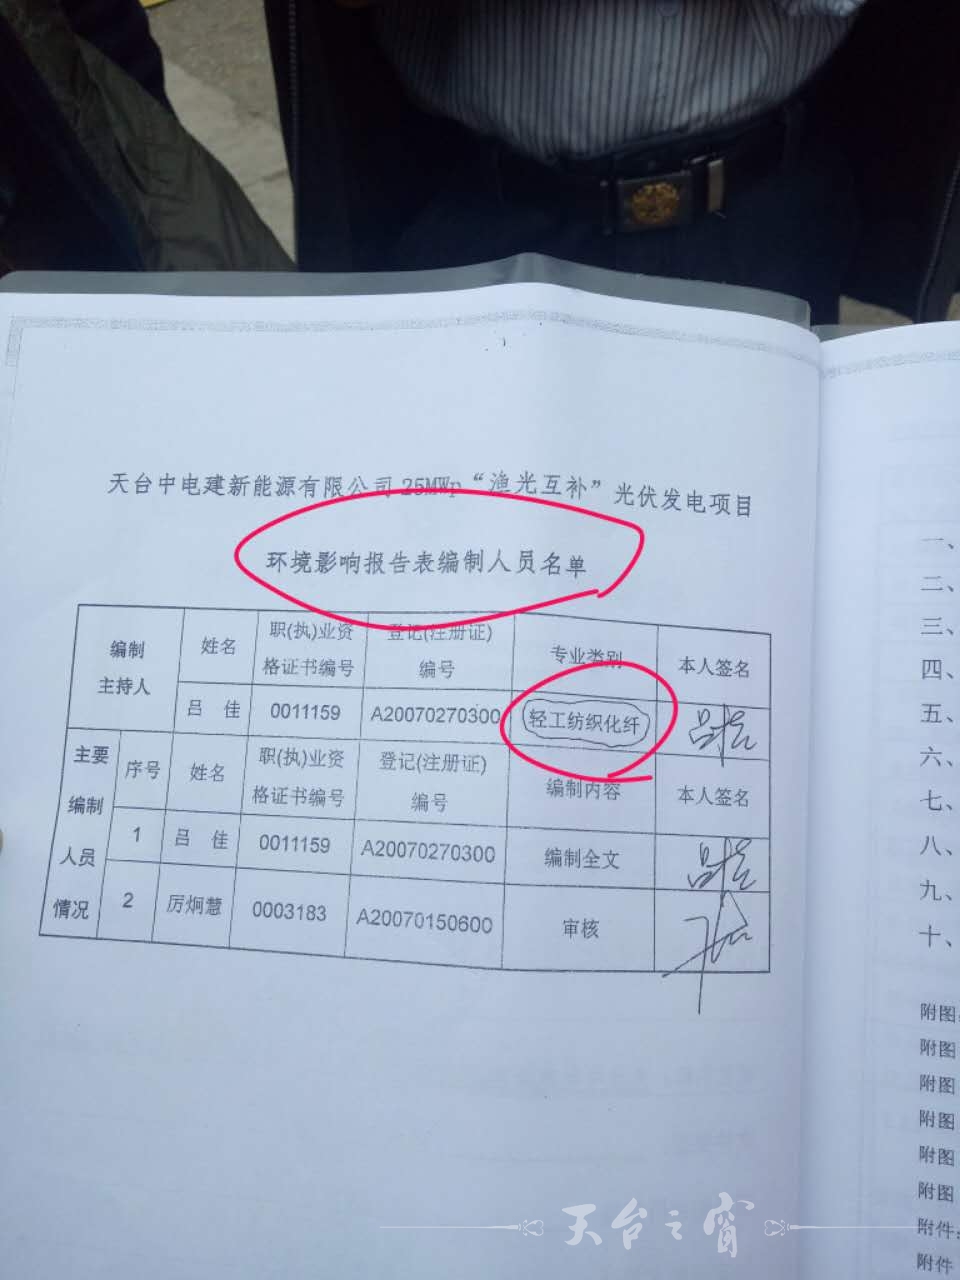 天台中电建新能源有限公司25MWp“渔光互补”光伏发电项目
环境影响报告表编制人员名单
编制主持人 姓名 职(执)业资格证书编号 登记(注册证)编号 专业类别 本人签名
吕 佳 0011159 A20070270300 轻工纺织化纤 吕佳
主要编制人员情况 序号 姓名 职(执)业资格证书编号 登记(注册证)编号 编制内容 本人签名
1 吕 佳 0011159 A20070270300 编制全文 吕佳
2 厉炯慧 0003183 A20070150600 审核
一、
二、
三、
四、
五、
六、
七、
八、
九、
十、
附图
附图
附图
附图
附图
附图
附件
附件
天台之窗